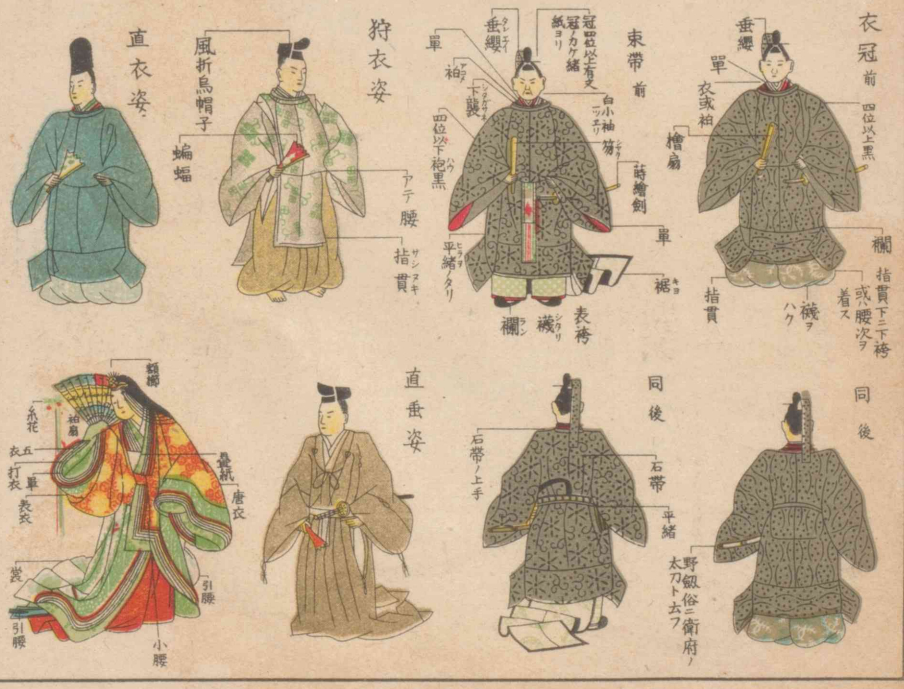 衣冠 前
垂纓
單
衣或袙
檜扇
四位以上黒
襴
指貫下ニ下袴
或ハ腰次ヲ
着ス
襪ヲ
ハク
指貫
束帶 前
冠四位以上有文
冠ノカケ緒
紙ヨリ
垂纓
タレエイ
單
袙
アコメ
下襲
四位以下袍黒
ハウ
白小袖
笏
シヤク
蒔繪劍
單
裾
キヨ
平緒ノタリ
ヒラヲ
表袴
襪
シタウツ
襴
ラン
狩衣姿
風折烏帽子
蝙蝠
アテ腰
指貫
サシヌキ
直衣姿
同 後
野劔俗ニ衛府ノ
太刀ト云フ
同 後
石帶ノ上手
石帶
平緒
直垂姿
額櫛
糸花
袙扇
五衣
打衣
單
表衣
疊紙
唐衣
裳
引腰
引腰
小腰